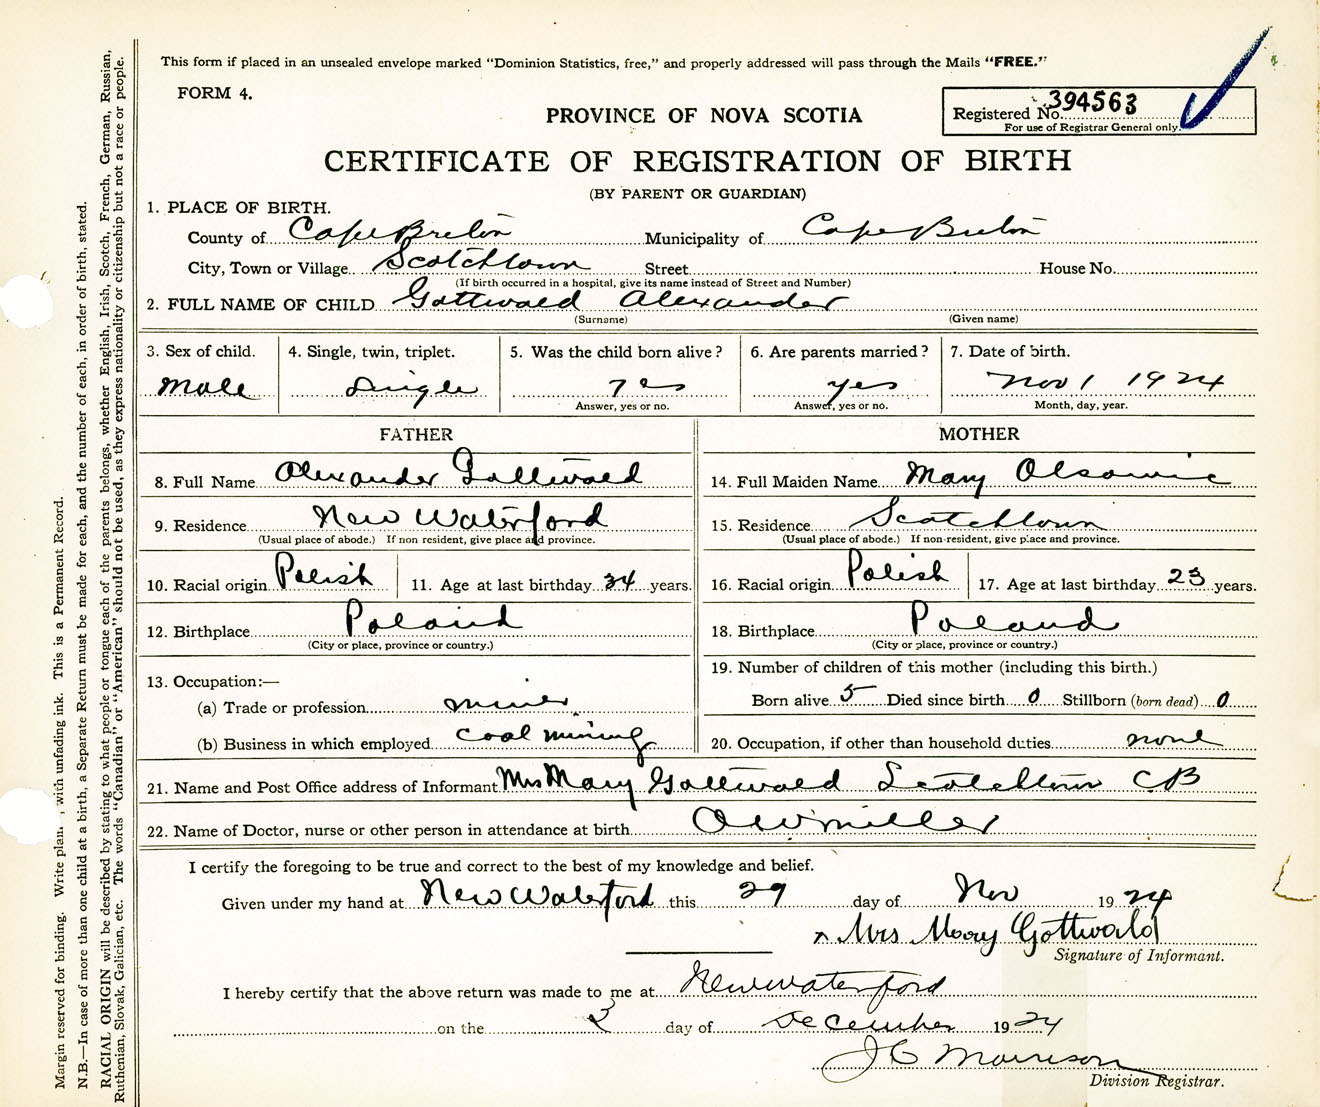 This form if placed in an unsealed envelope marked "Dominion Statistics, free," and properly addressed will pass through the Mails "FREE."
FORM 4.
Registered No. 394563
For use of Registrar General only.
PROVINCE OF NOVA SCOTIA
CERTIFICATE OF REGISTRATION OF BIRTH
(BY PARENT OR GUARDIAN)
1. PLACE OF BIRTH.
County of Cape Breton Municipality of Cape Breton
City, Town or Village Scotchtown Street House No.
(If birth occurred in a hospital, give its name instead of Street and Number)
2. FULL NAME OF CHILD Gottwald Alexander
(Surname) (Given name)
3. Sex of child. 4. Single, twin, triplet. 5. Was the child born alive? 6. Are parents married? 7. Date of birth.
Male Single Yes yes Nov 1 1924
Answer, yes or no. Answer, yes or no. Month, day, year.
FATHER
8. Full Name Alexander Gottwald
9. Residence New Waterford
(Usual place of abode.) If non resident, give place and province.
10. Racial origin Polish 11. Age at last birthday 34 years.
12. Birthplace Poland
(City or place, province or country.)
13. Occupation:—
(a) Trade or profession miner
(b) Business in which employed coal mining
MOTHER
14. Full Maiden Name Mary
15. Residence Scotchtown
(Usual place of abode.) If non-resident, give place and province.
16. Racial origin Polish 17. Age at last birthday 23 years.
18. Birthplace Poland
(City or place, province or country.)
19. Number of children of this mother (including this birth.)
Born alive 5 Died since birth 0 Stillborn (born dead) 0
20. Occupation, if other than household duties none
21. Name and Post Office address of Informant Mrs Mary Gottwald Scotchtown CB
22. Name of Doctor, nurse or other person in attendance at birth Miller
I certify the foregoing to be true and correct to the best of my knowledge and belief.
Given under my hand at New Waterford this 29 day of Nov 1924
x Mrs Mary Gottwald
Signature of Informant.
I hereby certify that the above return was made to me at New Waterford
on the 2 day of December 1924
J C Morrison
Division Registrar.
Margin reserved for binding. Write plainly, with unfading ink. This is a Permanent Record.
N.B.—In case of more than one child at a birth, a Separate Return must be made for each, and the number of each, in order of birth, stated.
RACIAL ORIGIN will be described by stating to what people or tongue each of the parents belongs, whether English, Irish, Scotch, French, German, Russian,
Ruthenian, Slovak, Galician, etc. The words "Canadian" or "American" should not be used, as they express nationality or citizenship but not a race or people.